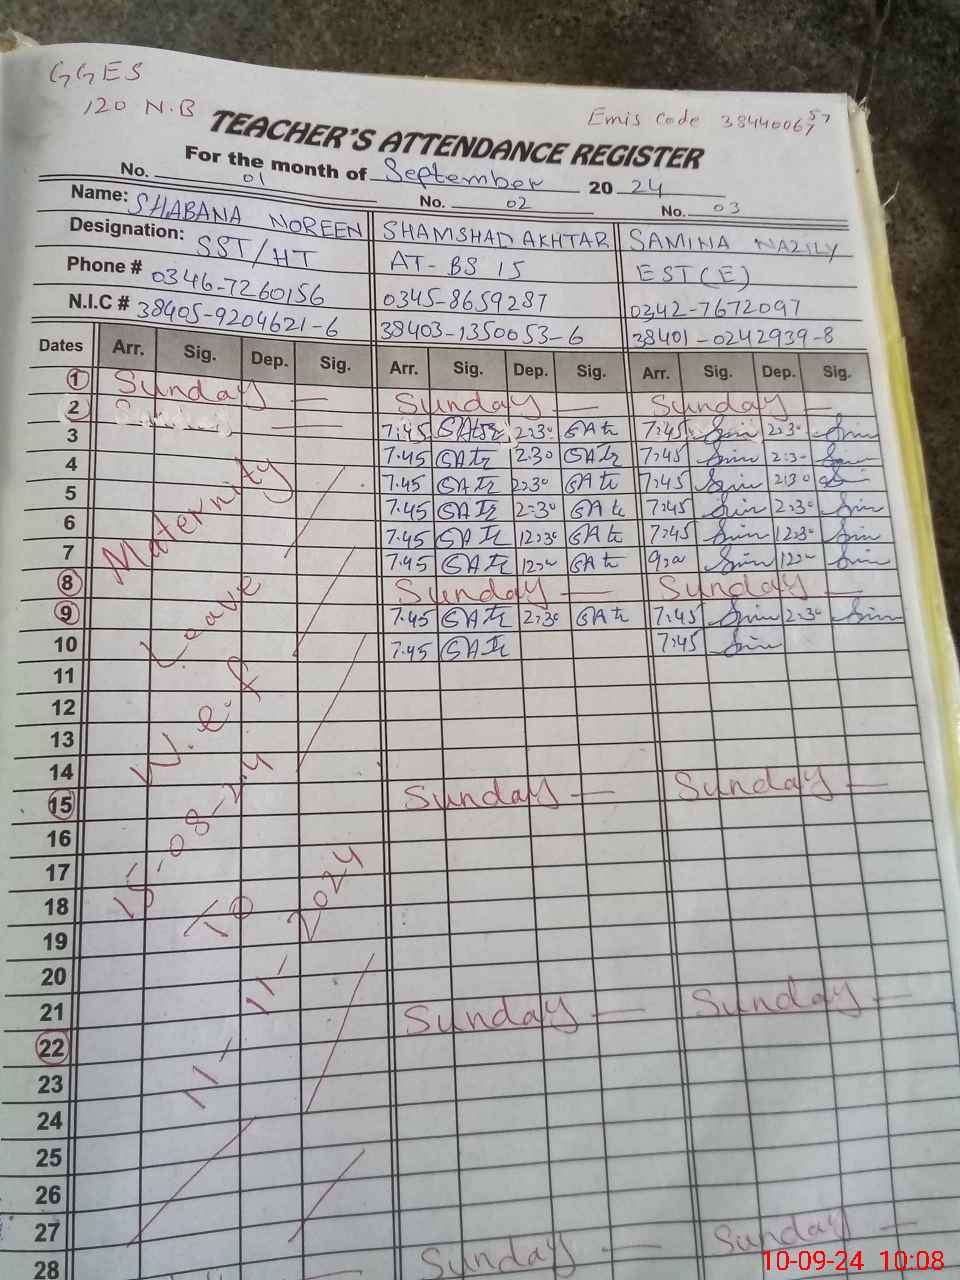 GGES
120 N.B
Emis Code 38440067 57
TEACHER'S ATTENDANCE REGISTER
For the month of September 2024
No. 01 No. 02 No. 03
Name: SHABANA NOREEN SHAMSHAD AKHTAR SAMINA NAZILY
Designation: SST/HT AT-BS 15 EST(E)
Phone # 0346-7260156 0345-8659287 0342-7672097
N.I.C # 38405-9204621-6 38403-1350053-6 38401-0242939-8
Dates Arr. Sig. Dep. Sig. Arr. Sig. Dep. Sig. Arr. Sig. Dep. Sig.
1 Sunday
2 Sunday Sunday Sunday
3 7:45 2:30 7:45 2:30
4 7.45 2.30 7:45 2:30
5 7.45 2:30 7:45 2:30
6 7.45 2:30 7:45 2:30
7 7.45 12:30 7:45 12:30
7.45 12:00 9:00 12:00
8 Sunday Sunday
9 7.45 2:30 7:45 2:30
10 7.45 7:45
11
12
13
14
15 Sunday Sunday
16
17
18
19
20
21 Sunday Sunday
22
23
24
25
26
27
28 Sunday Sunday
Maternity
Leave
W.e.f
15-08-24
To
11-11-2024
10-09-24 10:08